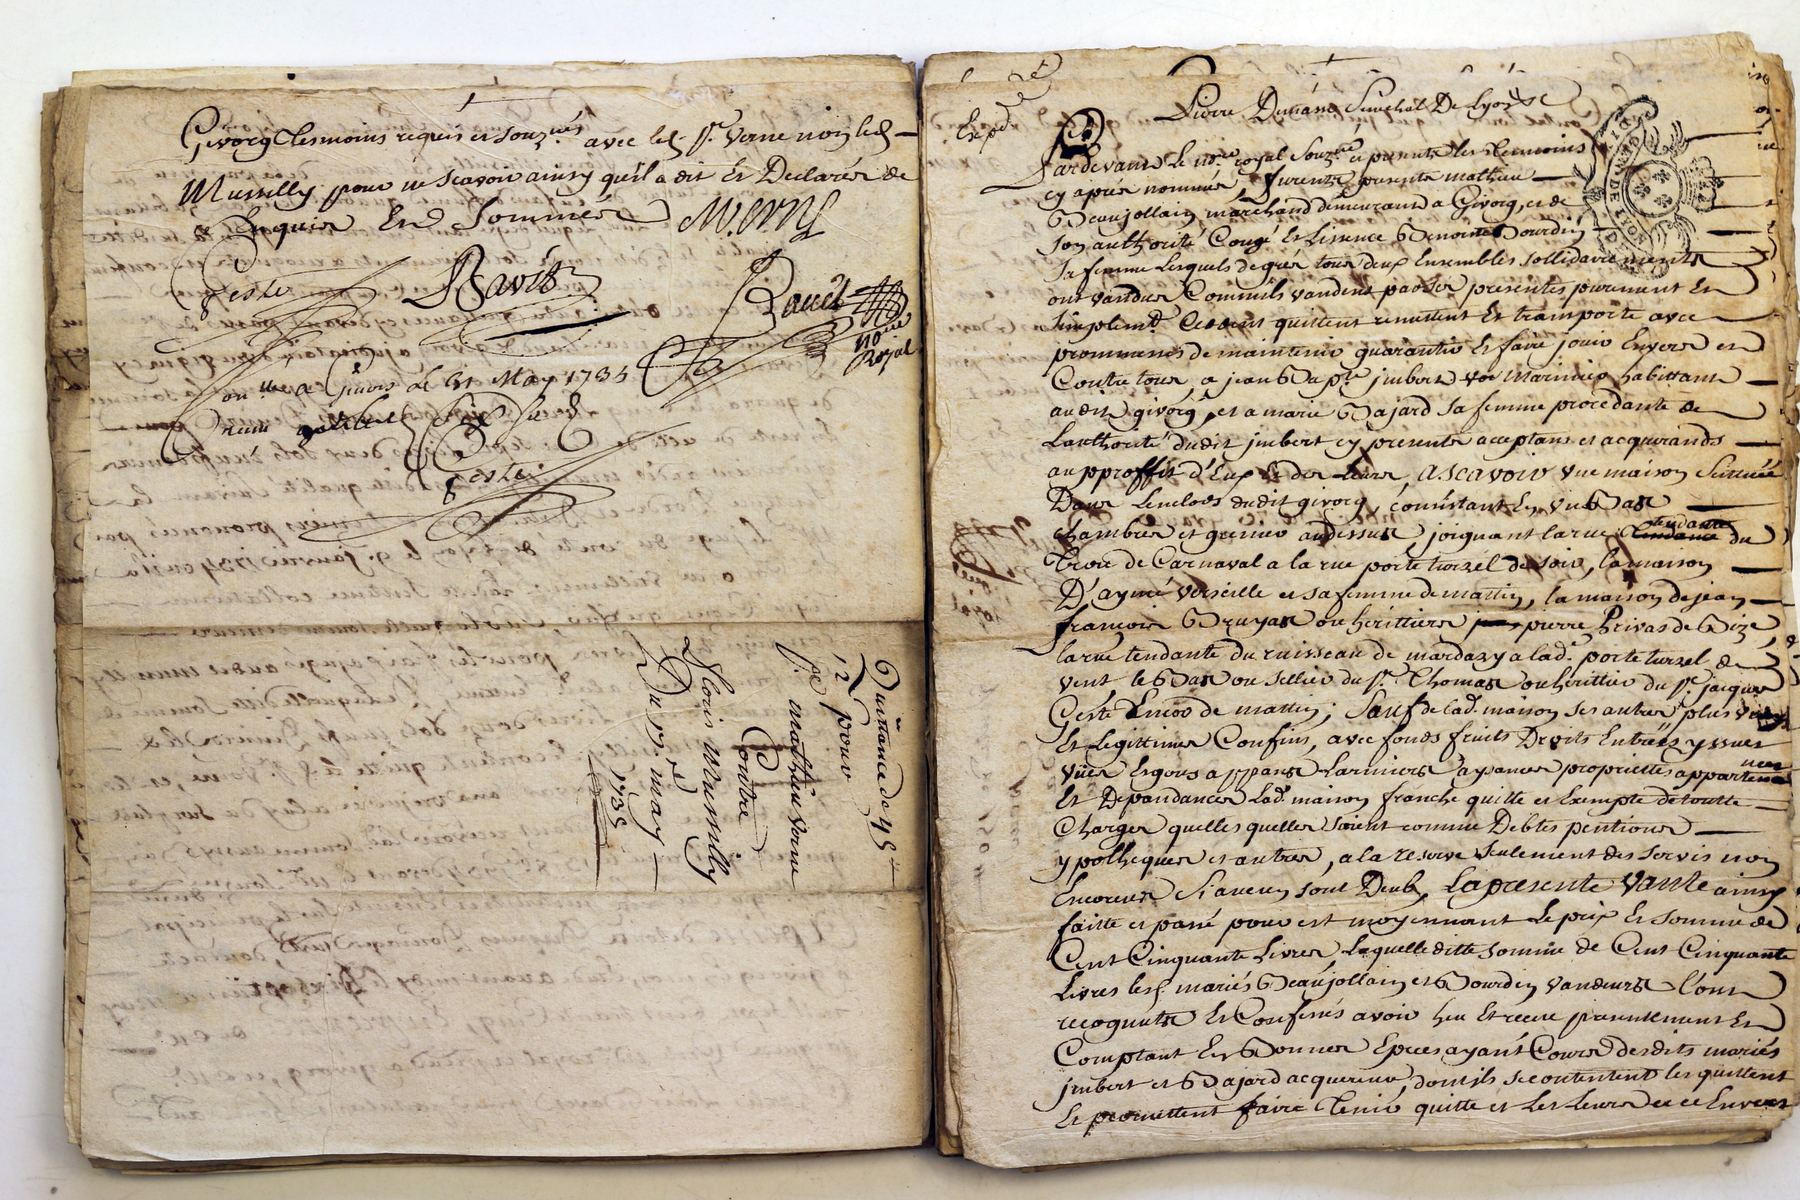 Givorg tesmoins requis et souz.nés avec led. Sr. Verne non led.
Mussilly pour ne scavoir ainsy qu'il a dit Et Declarér de
ce Enquis En Sommér M. Verne
teste Ravit
no.re Royal
a Givors le 31 May 1735
Quittance de 45
12
pour
Sr. mathieu Verne
Contre
Mussilly
Du 19. may
1735
Exp.dié
Pardevant Le no.re royal souz.né et presents les temoins
cy aprer nommér, furent presents mathieu
Beaujollain marchand demeurant a Givorg, et de
son authorité Congé Et Lisence Benoite Bourdin
sa femme Lesquels de gréz tous deux Ensembles sollidairements
ont vandus Comm'ils vandent par Ser presentes purement Et
simplemt. Cedent quittent remettent Et transporte avec
promesses de maintenir guarantir Et faire jouir Envers et
Contre tous, a jean Bapte. jmbert voe. Marinier habittant
audit givorg, et a marie Bajard sa femme procedante de
Lauthorité dudit jmbert cy presents aceptans et acquerands
au proffit d'Eux Et des Leurs, Ascavoir une maison Scittuée
Dans Lenclos dudit givorg, consistant En un Bas
chambrer et grenier audessus, joignant la rue tendante du
Treve de Carnaval a la rue porte turzel de soir, la maison
D'aymé Verseille et sa femme de mattin, la maison de jean
françois Bruyas ou hérittiers pierre Privas de Bize,
la rue tendante du ruisseau de mardazy a lad. porte turzel de
vent le Bas ou sellier du Sr. Thomas ou hérittier du Sr. jacques
Geste de mattin; Sauf de lad. maison ses autres plus vrays
Et Legittimes Confins, avec fonds fruits Droits Entrées yssues
vües Esgous appans Larmiers aysances propriettés appartenances
Et Dependances Lad. maison franche quitte et Exempte de toutte
Charges quelles quelles soient comme Debtes pentions
ypotheques et autres, a la reserve seulement des servis non
Encourus Si aucun sont Deubs, La presente Vante ainsy
faitte et passé pour et moyennant Le prix Et somme de
Cent Cinquante Livres Laquelleditte somme de Cent Cinquante
Livres lesd. mariés Beaujollain et Bourdin vandeurs L'ont
recognuts Et Confessés avoir heu Et receu presentement Et
Comptant En Bonnes Epces ayant Cours desdits mariés
jmbert et Bajard acquereurs, dont ils se contentent les quittent
Et promettent faire Tenir quitte et Les Leurs de ce Envers